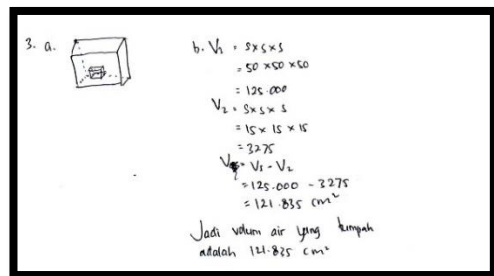 3. a.
b. V₁ = s x s x s
= 50 x 50 x 50
= 125.000
V₂ = s x s x s
= 15 x 15 x 15
= 3275
= V₁ - V₂
= 125.000 - 3275
= 121.835 cm²
Jadi volum air yang tumpah
adalah 121.835 cm²